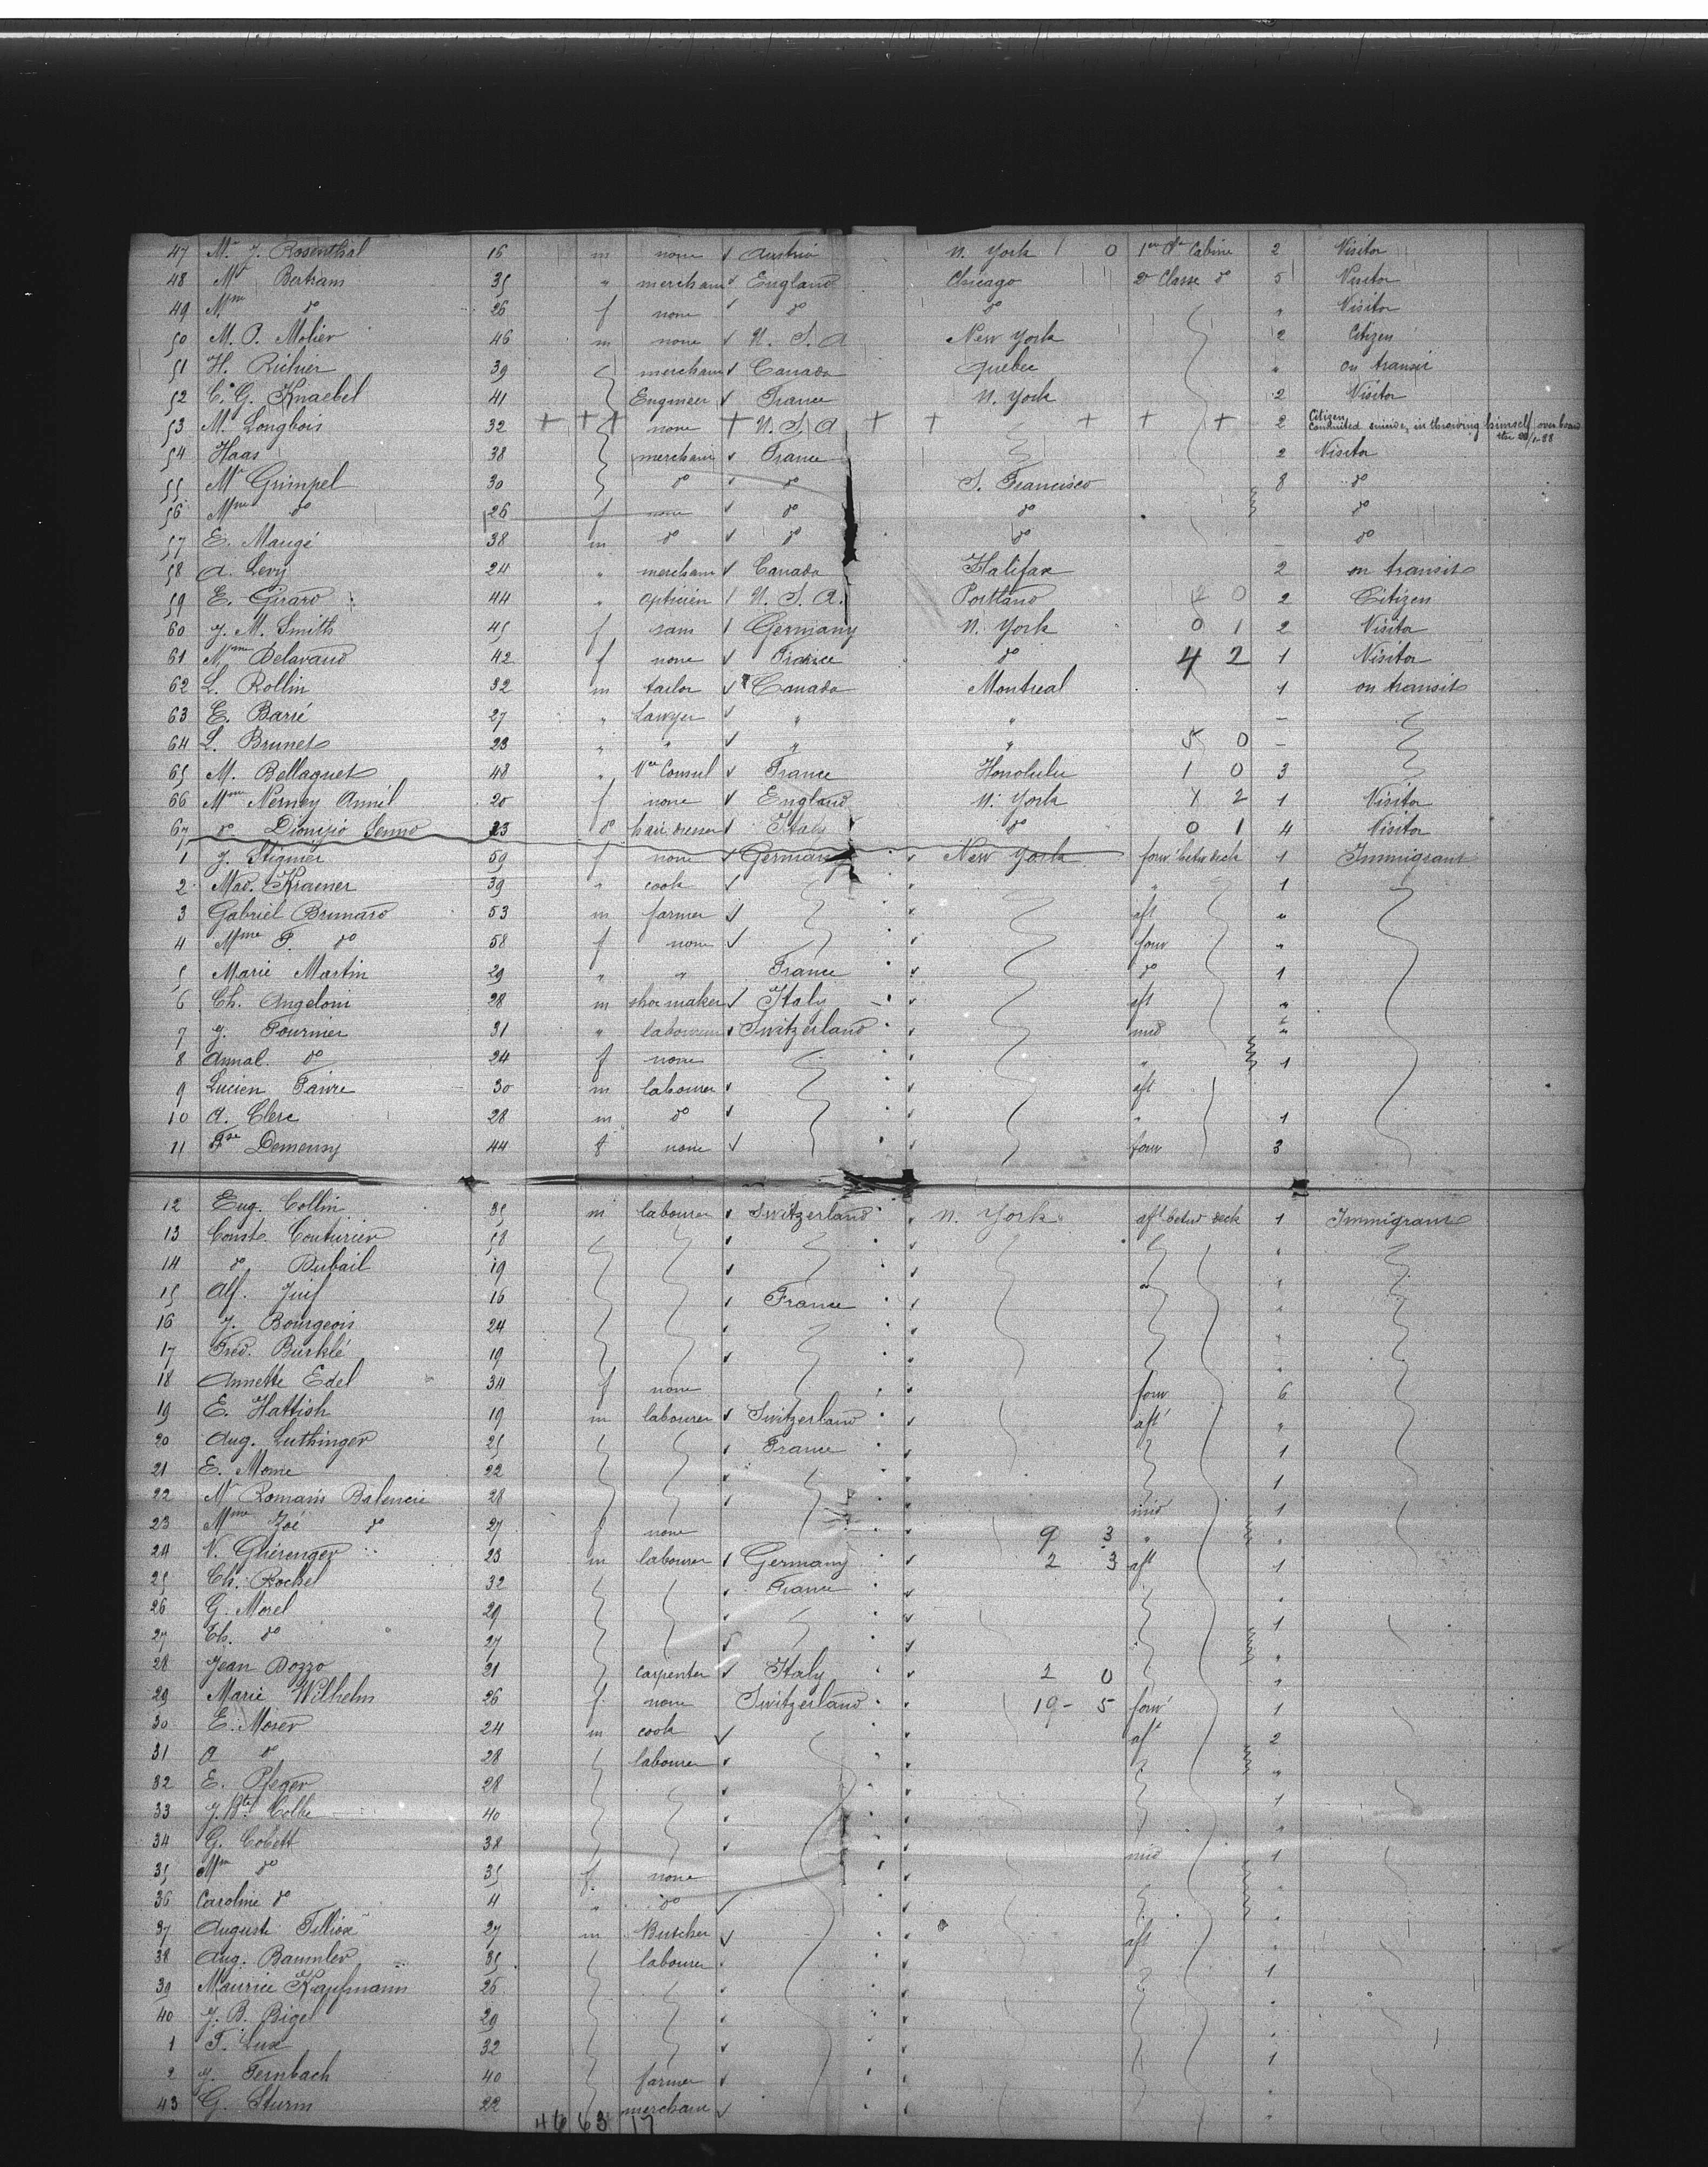 47 Mr J. Rosenthal 16 m none Austria N. York 0 1ere Cl. Cabine 2 Visitor
48 Mr Bertram 35 " merchant England Chicago 2e Classe do 5 Visitor
49 Mme do 26 f none do do " Visitor
50 M. P. Molier 46 m none U. S. A New York 2 Citizen
51 H. Richier 39 merchant Canada Quebec " on transit
52 C. G. Knaebel 41 Engineer France N. York 2 Visitor
53 M. Longbois 32 + + + none + U. S. A + + + + + 2 Citizen Committed suicide, in throwing himself over board
54 Haas 38 merchant France 2 Visitor
55 Mr Grimpel 30 do do S. Francisco 8 do
56 Mme do 26 f none do do do
57 E. Maugé 38 m do do do do
58 A. Levy 24 " merchant Canada Halifax 2 on transit
59 E. Girard 44 " opticien U. S. A. Portland 2 0 2 Citizen
60 J. M. Smith 45 f sans Germany N. York 0 1 2 Visitor
61 Mme Delavaud 42 f none France do 4 2 1 Visitor
62 L. Rollin 32 m tailor Canada Montreal 1 on transit
63 E. Barré 27 " Lawyer " " –
64 L. Brunet 23 " " " " 5 0 –
65 M. Bellaguet 48 " Vce Consul France Honolulu 1 0 3
66 Mme Nerney Annil 20 f none England N. York 1 2 1 Visitor
67 do Dionizio Senno 23 do hair dresser Italy do 0 1 4 Visitor
1 J. Stigmer 59 f none Germany New York forw betw deck 1 Immigrant
2 Mad. Kraemer 39 " cook " 1
3 Gabriel Brunard 53 m farmer aft "
4 Mme F. do 58 f none forw "
5 Marie Martin 29 " " France do 1
6 Ch. Angeloni 28 m shoe maker Italy aft "
7 J. Fournier 31 " labourer Switzerland mid "
8 Annal. do 24 f none " 1
9 Lucien Faivre 30 m labourer aft
10 A. Clerc 28 m do " 1
11 Demenny 44 f none forw 3
12 Eug. Collin 35 m labourer Switzerland N. York aft betw deck 1 Immigrant
13 Const. Couturier 58 "
14 do Dubail 19 "
15 Alf. Juif 16 France "
16 J. Bourgeois 24 "
17 Fred. Burklé 19 "
18 Annette Edel 34 f none forw 6
19 E. Hattish 19 m labourer Switzerland aft "
20 Aug. Luthinger 25 France 1
21 E. Mome 22 1
22 Mr Romain Balencie 28 mid 1
23 Mme Zoé do 27 f none 9 3 " "
24 V. Gherenger 23 m labourer Germany 2 3 aft 1
25 Ch. Rockel 32 France "
26 G. Morel 29 1
27 Ch. do 27 "
28 Jean Bozzo 21 carpenter Italy 2 0 "
29 Marie Wilhelm 26 f none Switzerland 19 - 5 forw 1
30 E. Moser 24 m cook aft 2
31 A do 28 labourer "
32 E. Pfeger 28 1
33 J. Bte Colbe 40 "
34 G. Cobett 38 mid 1
35 Mme do 35 f none
36 Caroline do 4 " do "
37 Auguste Tillioa 27 m Butcher aft "
38 Aug. Baumler 35 labourer 1
39 Maurice Kapfmann 26 "
40 J. B. Bigel 29 "
1 F. Lux 32 1
2 J. Fernbach 40 farmer "
43 G. Sturm 22 merchant "
46 63 17